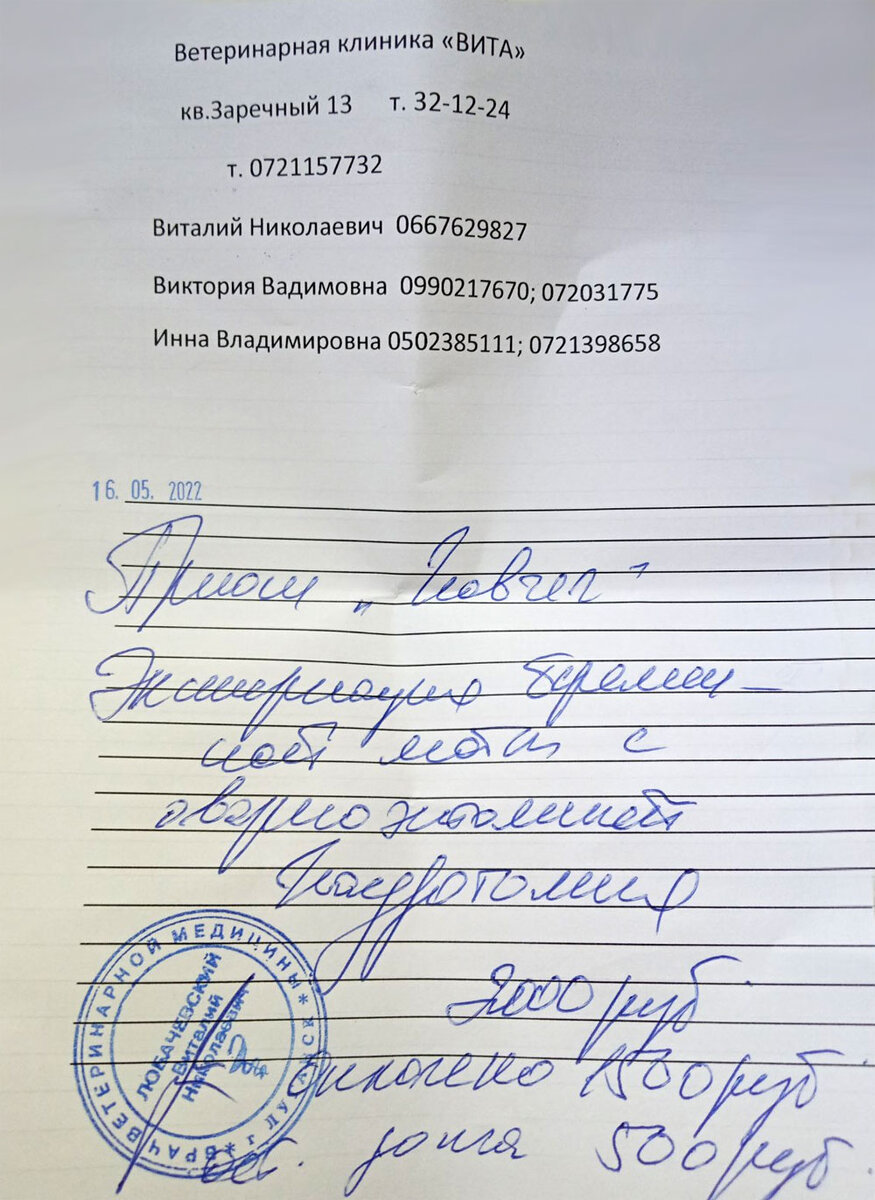 Ветеринарная клиника «ВИТА»
кв.Заречный 13 т. 32-12-24
т. 0721157732
Виталий Николаевич 0667629827
Виктория Вадимовна 0990217670; 072031775
Инна Владимировна 0502385111; 0721398658
16. 05. 2022
Приют „Ковчег"
Экстирпация беремен-
ной матки с
овариоэктомией
2000 руб
оплачено 1500 руб
ост. долга 500 руб.
ВРАЧ ВЕТЕРИНАРНОЙ МЕДИЦИНЫ * г. ЛУГАНСК *
ЛОБАЧЕВСКИЙ
Виталий
Николаевич